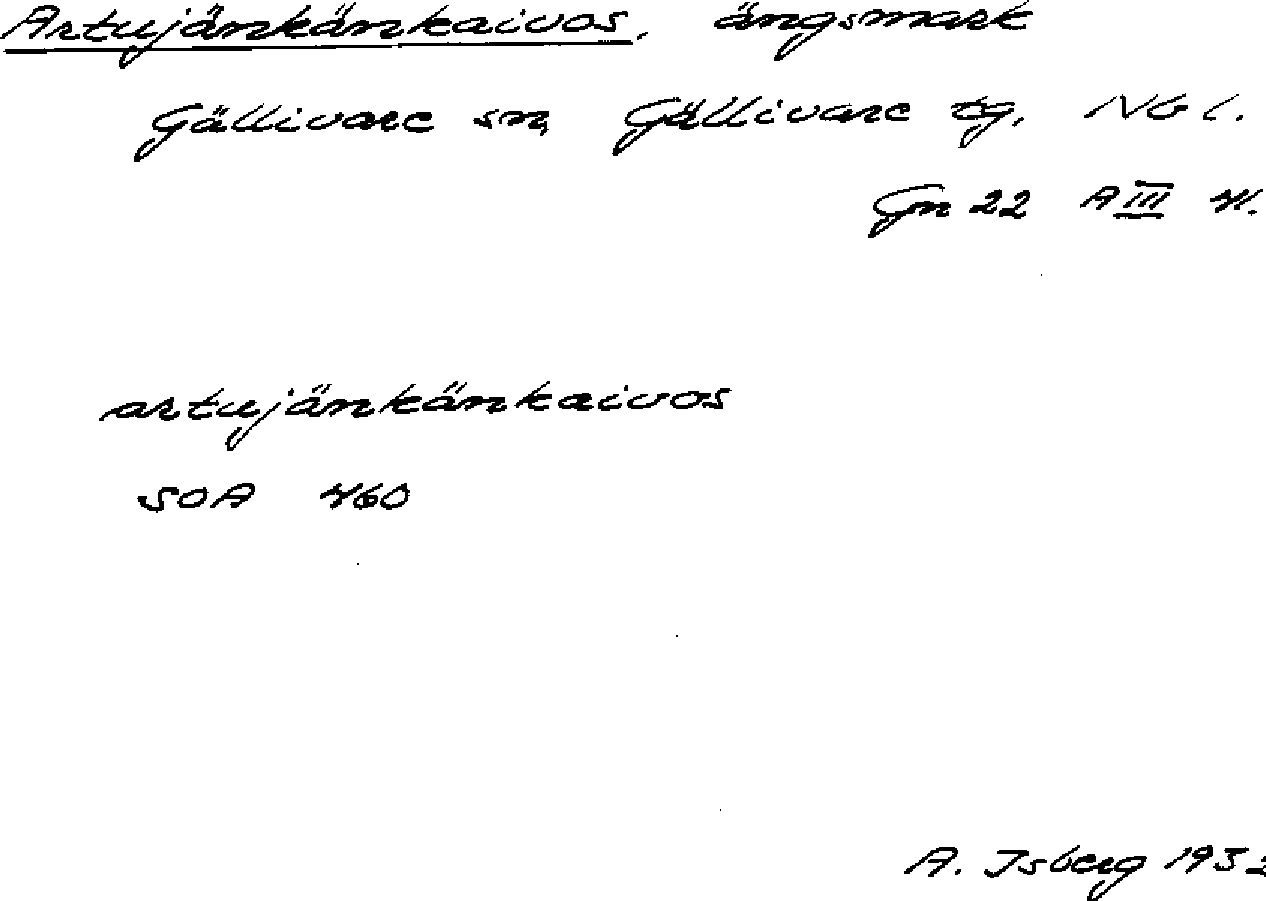 Artujänkänkaivos, ängsmark
Gällivare sn, Gällivare tg. Nb l.
Gn 22 A III 41.
artujänkänkaivos
SOA 460
A. Isberg